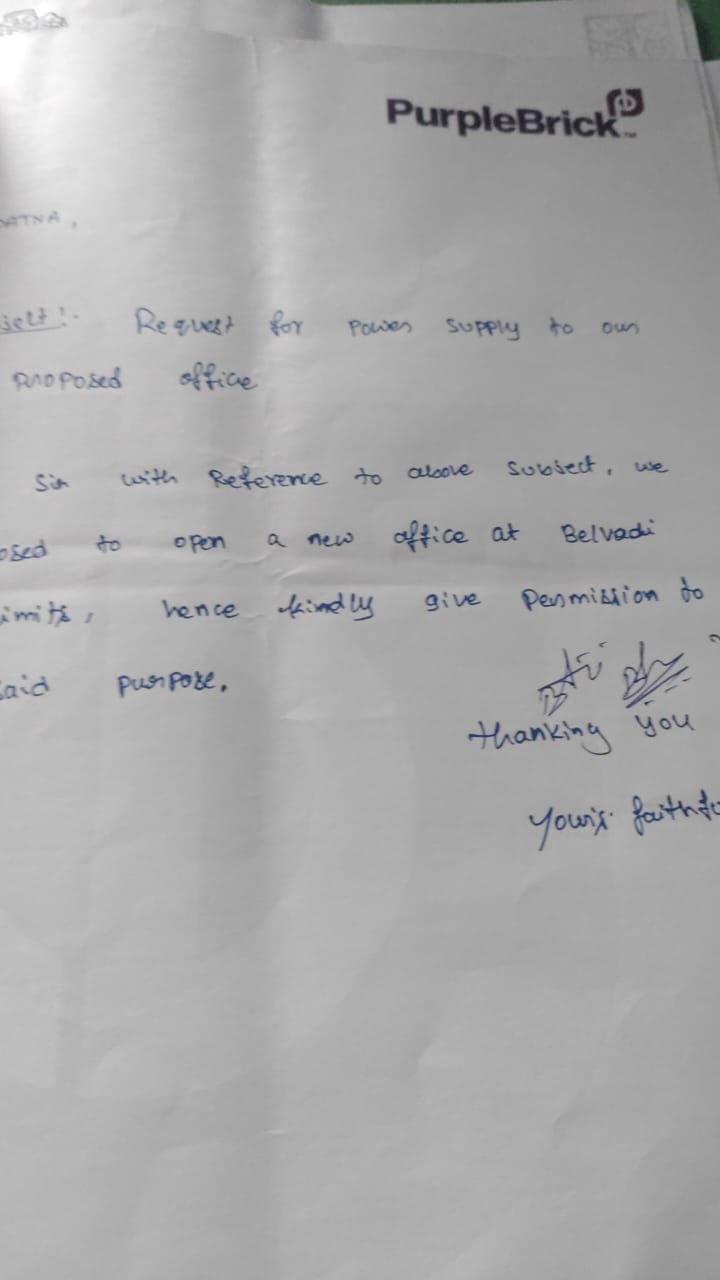 PurpleBrick™
ATNA,
ject:- Request for Power supply to our
proposed office
Sir with Reference to above subject, we
osed to open a new office at Belvadi
imits, hence kindly give Permission to
aid purpose.
thanking you
your's faithfu